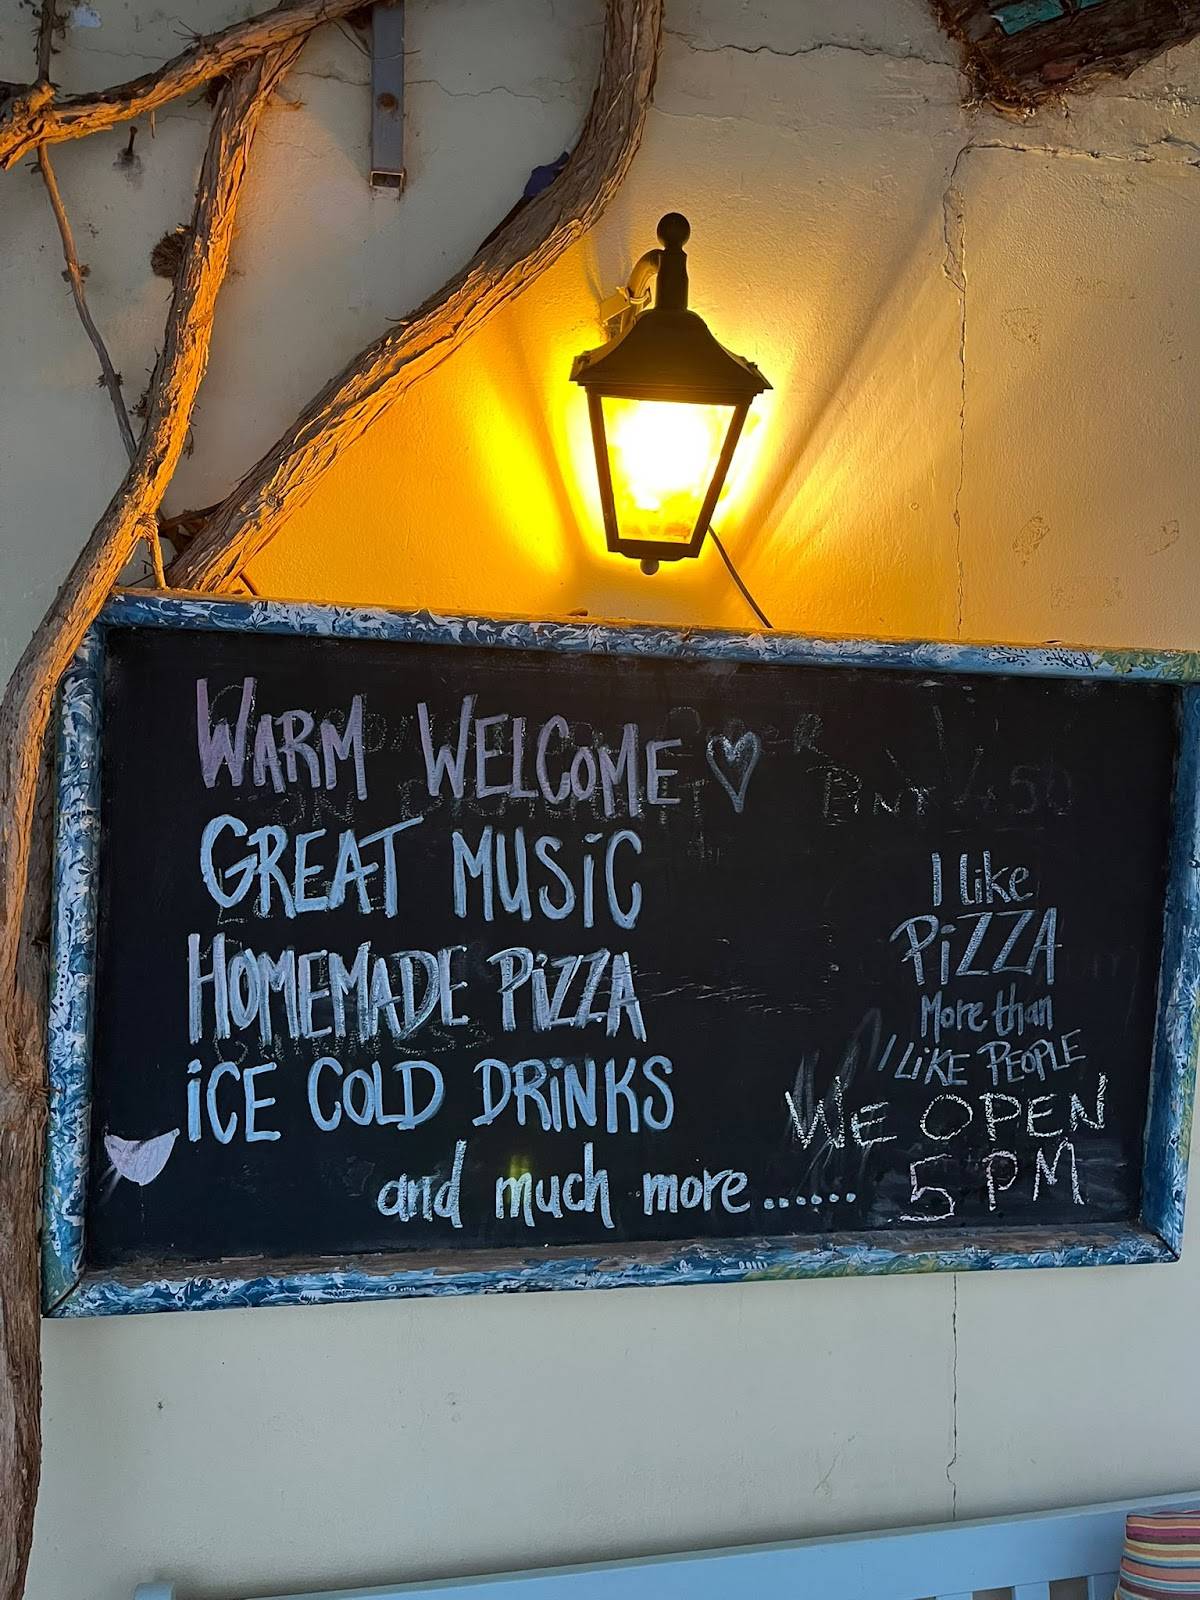 WARM WELCOME
GREAT MUSiC
HOMEMADE PiZZA
iCE COLD DRiNKS
and much more......
I like
PiZZA
More than
I LiKE PEOPLE
WE OPEN
5 PM